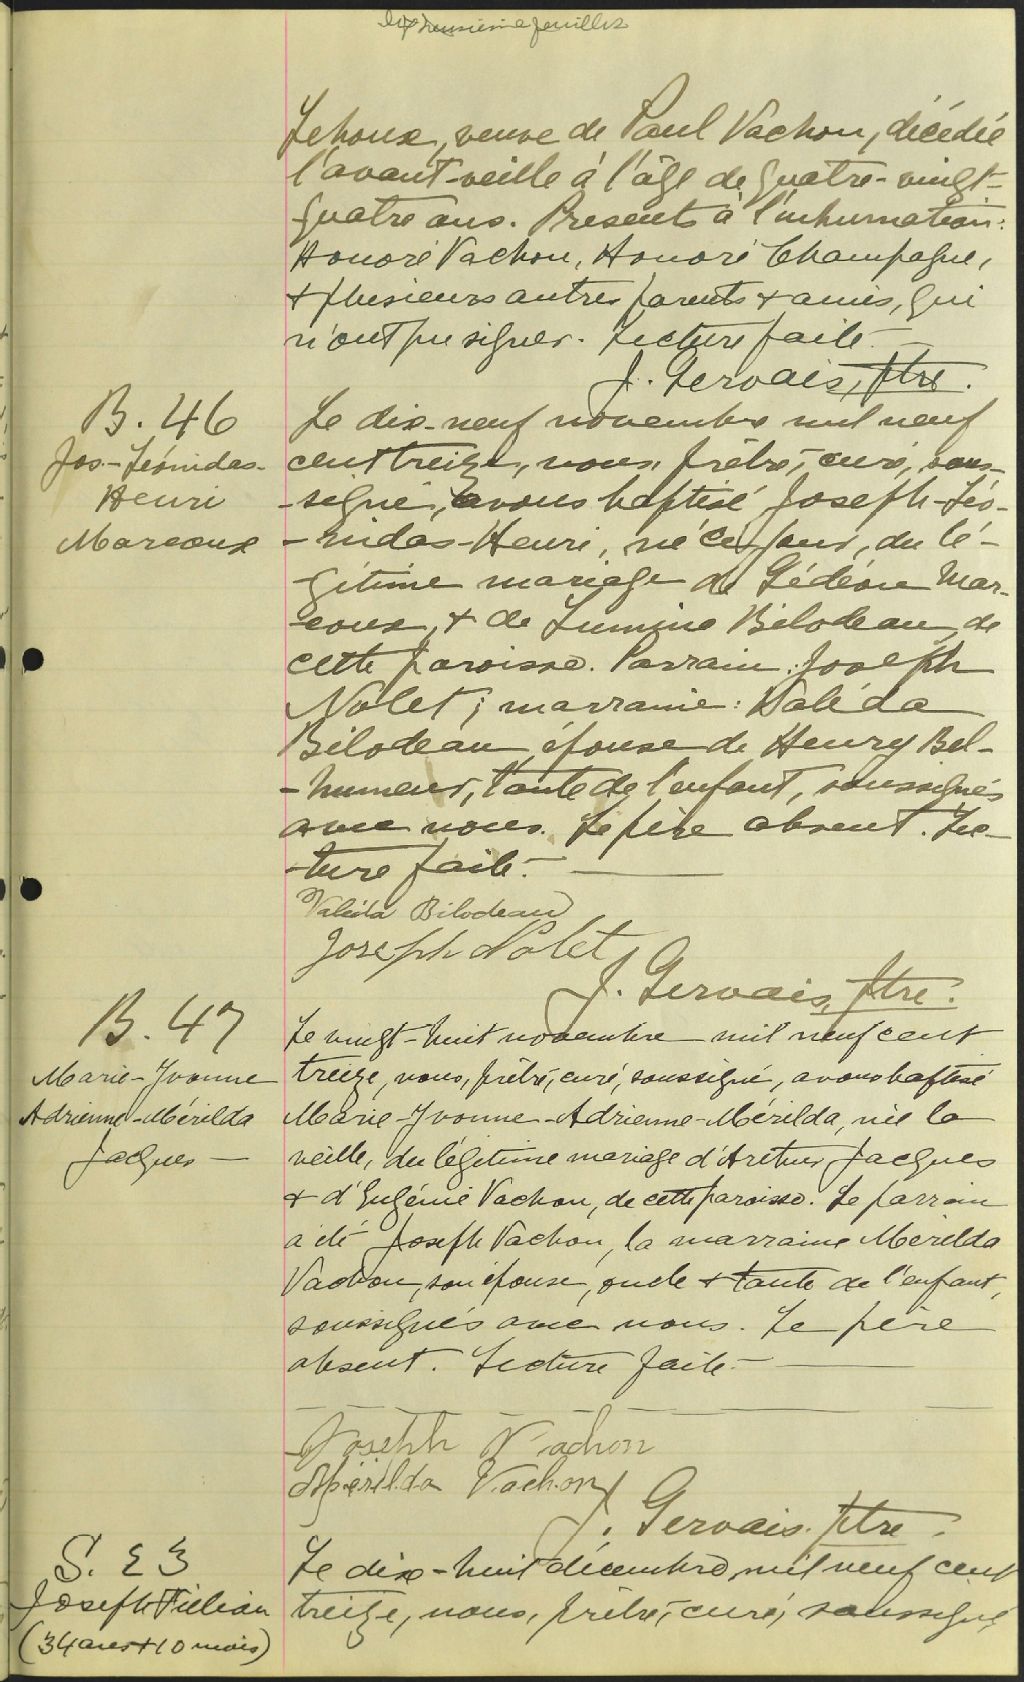 feuillet
Lehoux, veuve de Paul Vachon, décédée
l'avant-veille à l'âge de quatre-vingt-
quatre ans. Présents à l'inhumation:
Honoré Vachon, Honoré Champagne,
& plusieurs autres parents & amis, qui
n'ont pu signer. Lecture faite.—
J. Gervais, ptre.
B. 46
Jos-Léonidas-
Henri
Marcoux
Le dix-neuf novembre mil neuf
cent treize, nous, prêtre, curé, sous-
-signé, avons baptisé Joseph-Léo-
-nidas-Henri, né ce jour, du lé-
-gitime mariage de Gédéon Mar-
-coux, & de Lumina Bilodeau, de
cette paroisse. Parrain: Joseph
Nolet; marraine: Valéda
Bilodeau, épouse de Henry Bel-
-humeur, tante de l'enfant, soussignés
avec nous. Le père absent. Lec-
-ture faite.—
Valéda Bilodeau
Joseph Nolet
J. Gervais, ptre.
B. 47
Marie-Yvonne
Adrienne-Mérilda
Jacques —
Le vingt-huit novembre mil neuf cent
treize, nous, prêtre, curé, soussigné, avons baptisé
Marie-Yvonne-Adrienne-Mérilda, née la
veille, du légitime mariage d'Arthur Jacques
& d'Eugénie Vachon, de cette paroisse. Le parrain
a été Joseph Vachon, la marraine Mérilda
Vachon, son épouse, oncle & tante de l'enfant,
soussignés avec nous. Le père
absent. Lecture faite.—
Joseph Vachon
Mérilda Vachon
J. Gervais. ptre.
S. 23
Joseph Fillion
(34 ans & 10 mois)
Le dix-huit décembre, mil neuf cent
treize, nous, prêtre, curé, soussigné,